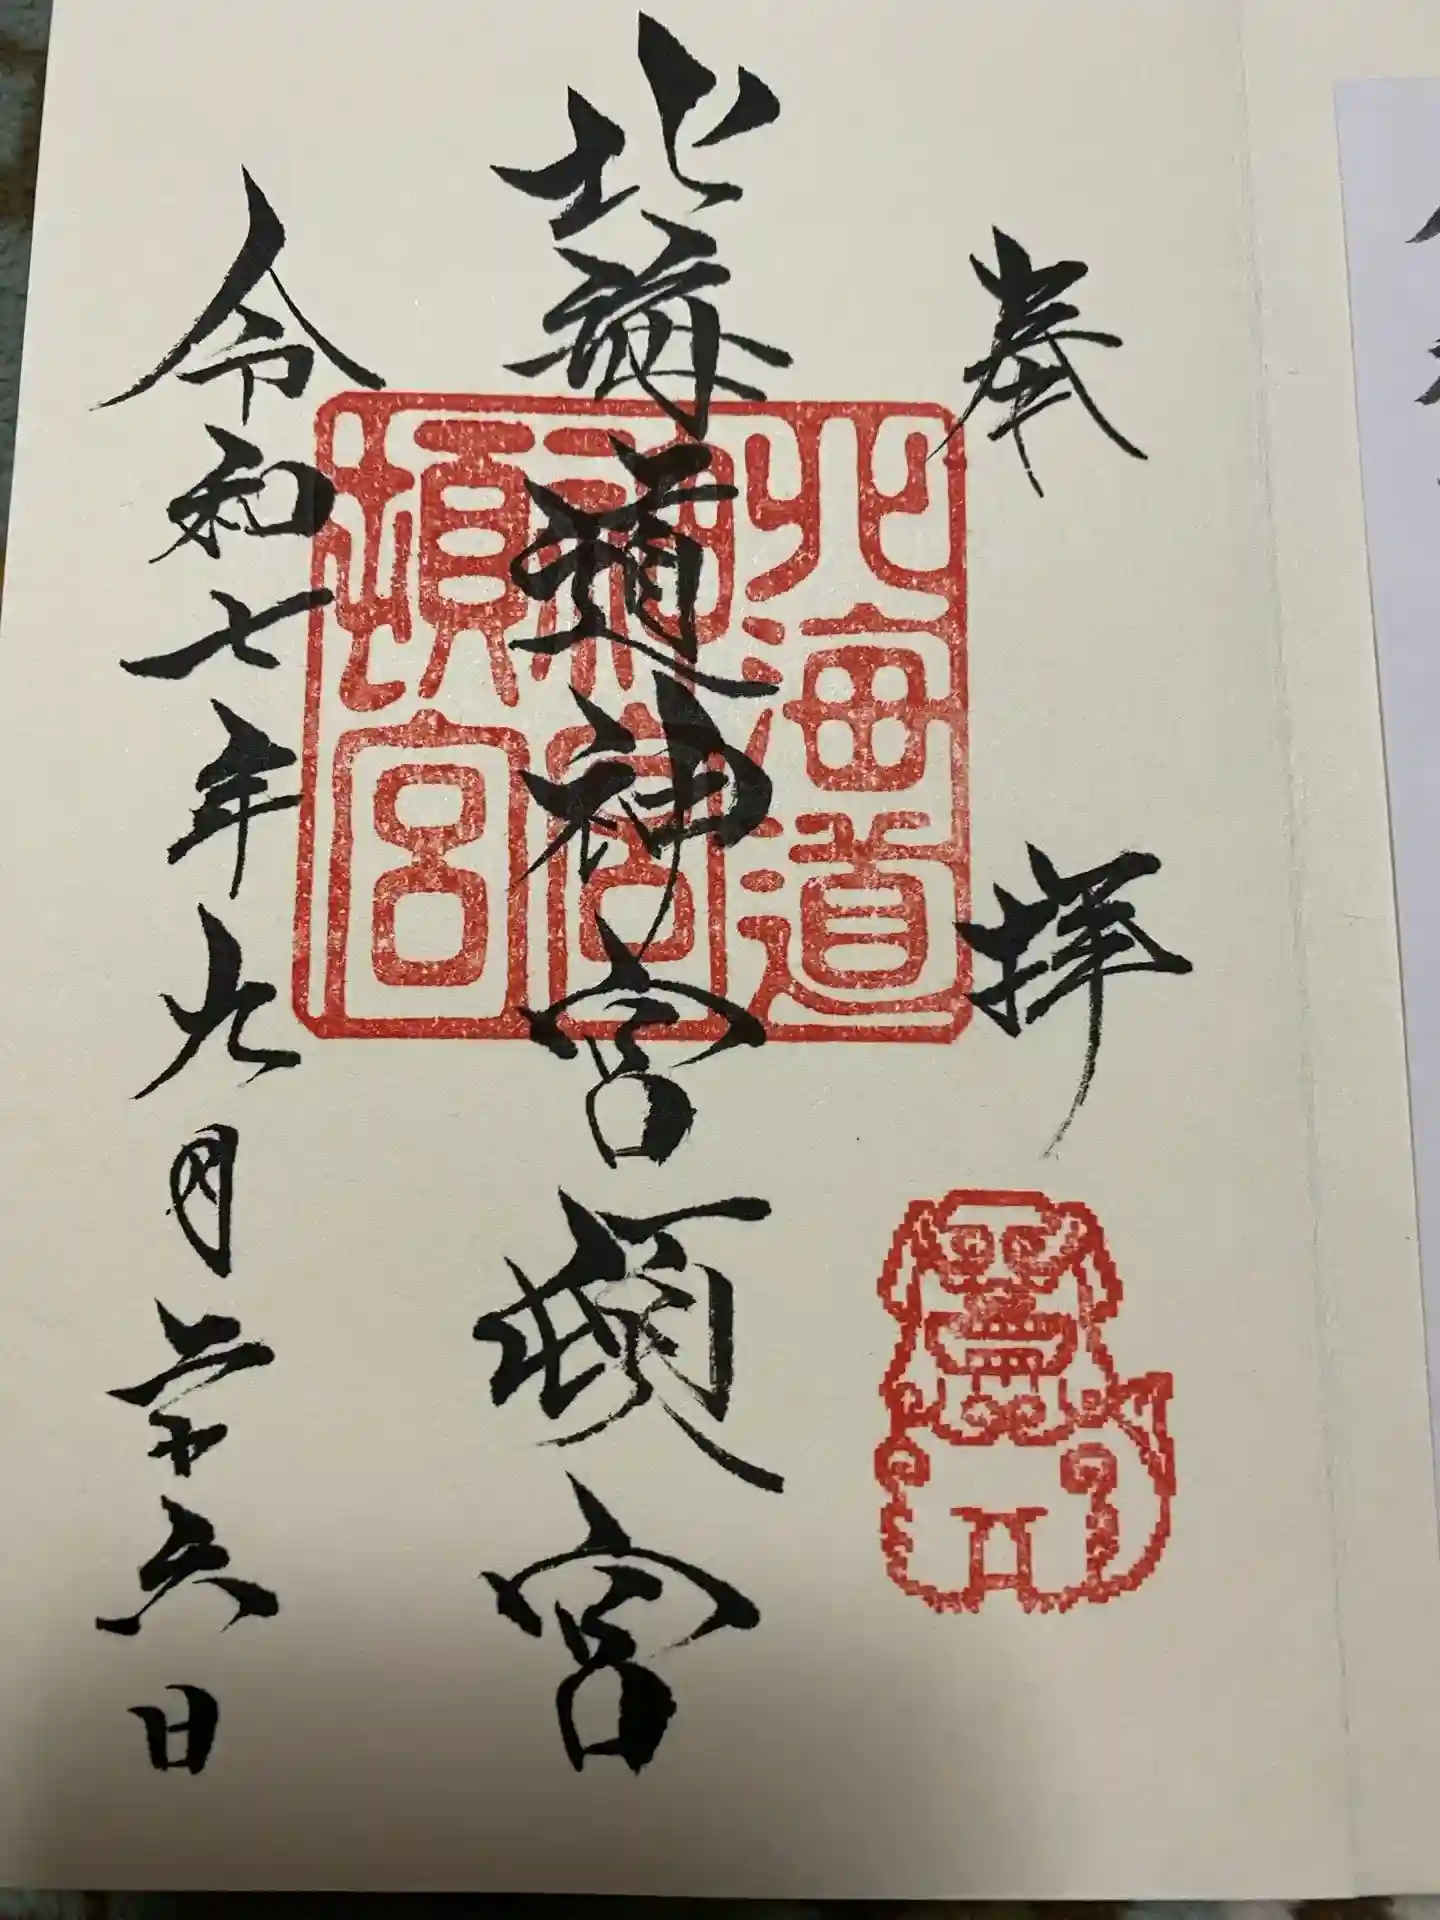 奉拝
北海道神宮頓宮
北海道
神宮
頓宮
令和七年九月二十六日